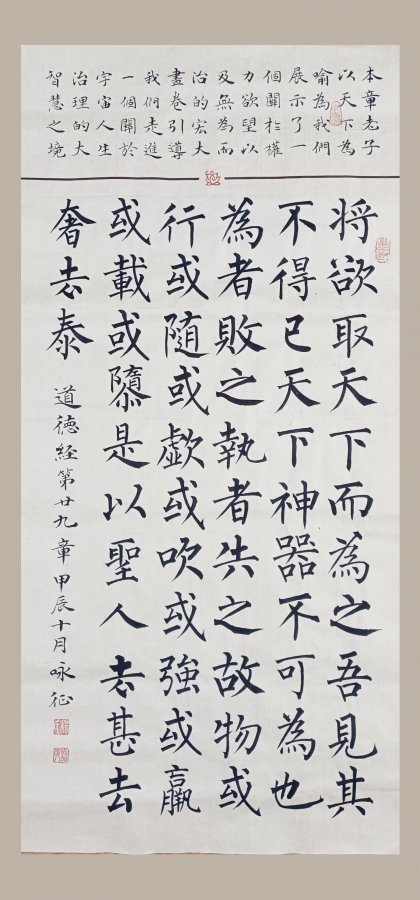 本章老子
以天下為
喻為我們
展示了一
個關於權
力欲望以
及無為而
治的宏大
畫卷引導
我們走進
一個關於
宇宙人生
治理的大
智慧之境
将欲取天下而為之吾見其
不得已天下神器不可為也
為者敗之執者失之故物或
行或隨或歔或吹或強或羸
或載或隳是以聖人去甚去
奢去泰
道德經第廿九章 甲辰十月 咏征